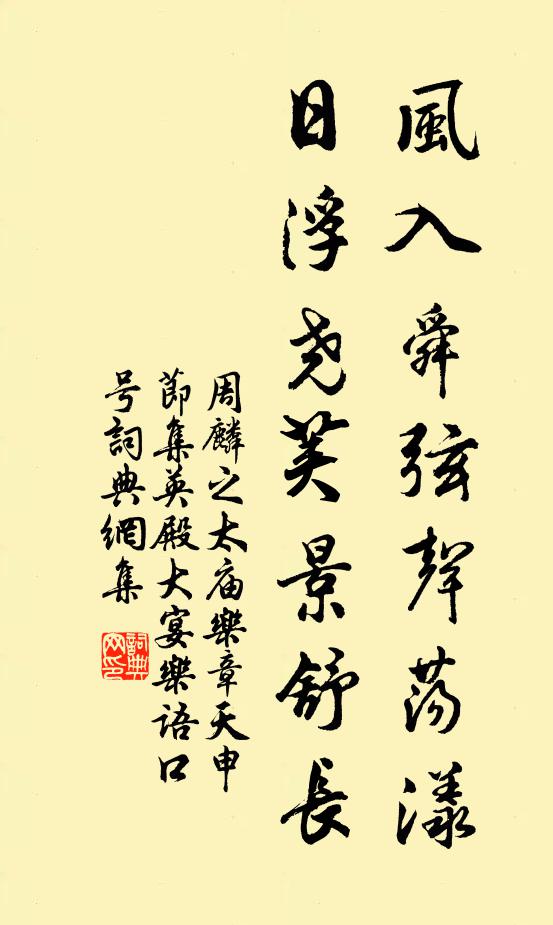 風入舜弦聲荡漾
日浮尧荚景舒長
周麟之太庙樂章天申
節集英殿大宴樂语口
号詞典網集
詞典
网印